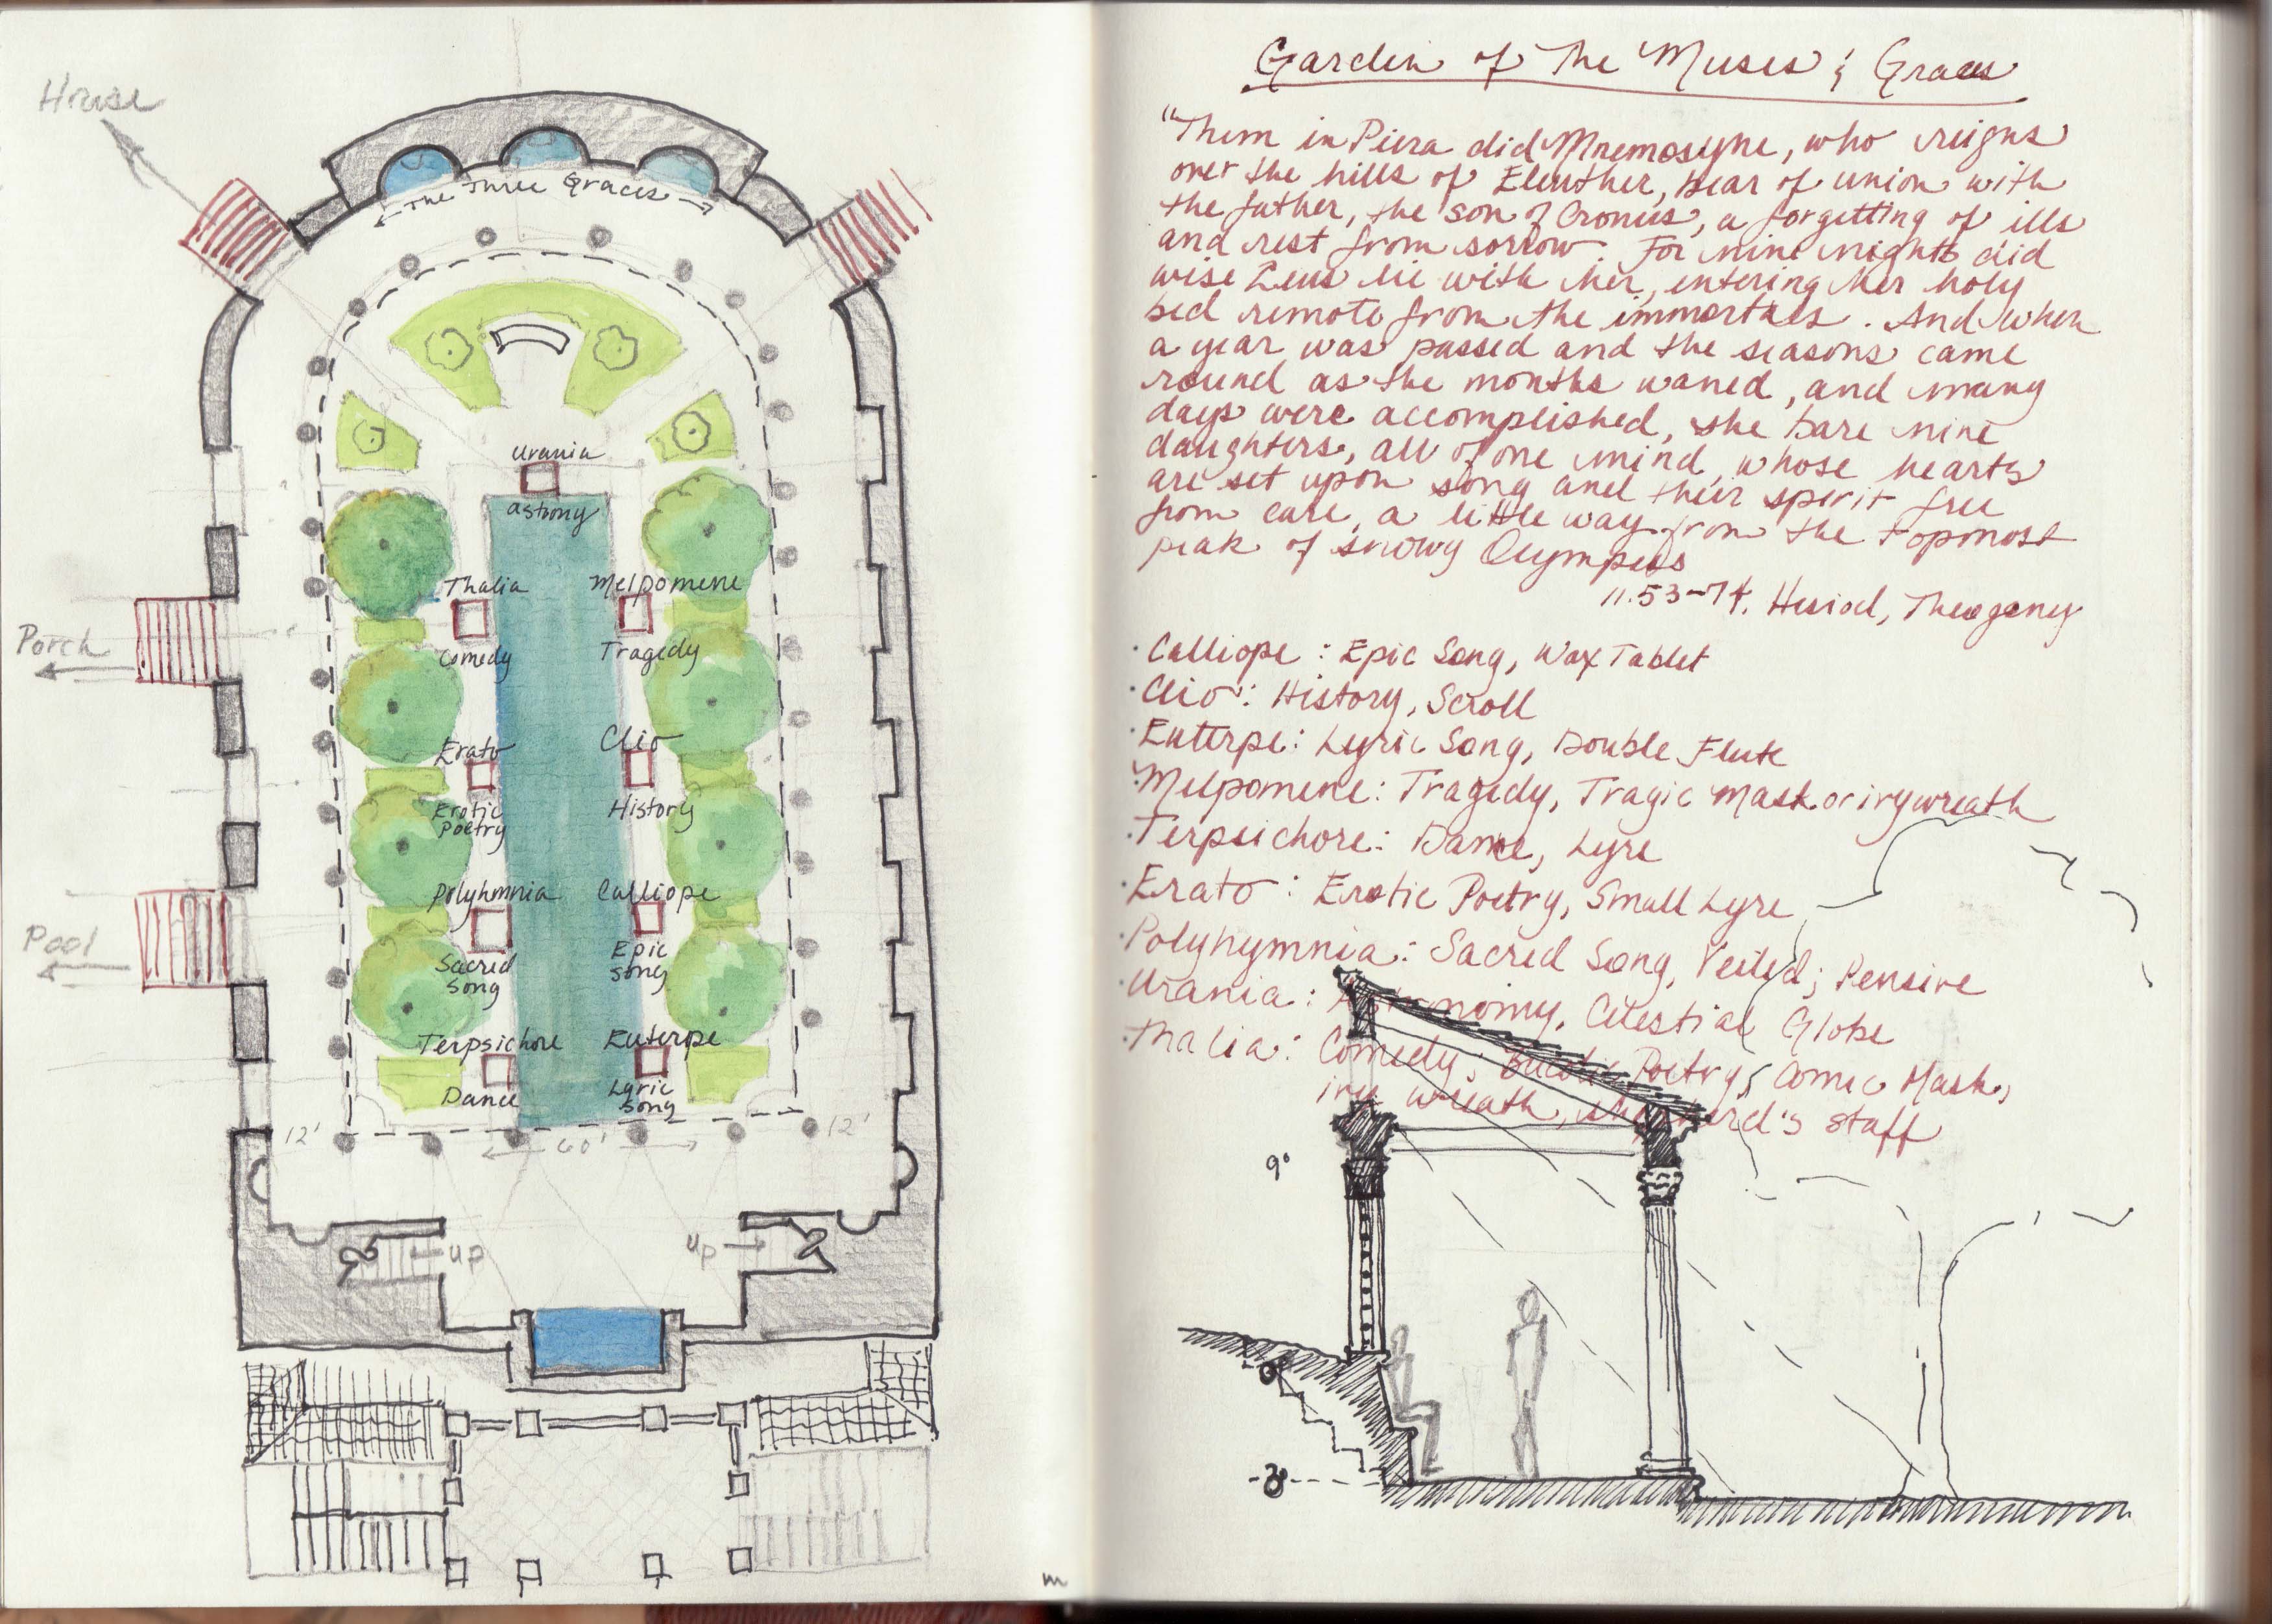 House
The Three Graces
Urania
astrony
Thalia
Melpomene
Comedy
Tragedy
Porch
Erato
Clio
Erotic
Poetry
History
Polyhmnia
Calliope
Sacred
Song
Epic
song
Pool
Terpsichore
Euterpe
Dance
Lyric
Song
12'
60'
12'
up
up
m
Garden of The Muses & Graces
"Them in Piera did Mnemosyne, who reigns
over the hills of Eleuther, bear of union with
the father, the son of Cronus, a forgetting of ills
and rest from sorrow. For nine nights did
wise Zeus lie with her, entering her holy
bed remote from the immortals. And when
a year was passed and the seasons came
round as the months waned, and many
days were accomplished, she bare nine
daughters, all of one mind, whose hearts
are set upon song and their spirit free
from care, a little way from the topmost
peak of snowy Olympus
11.53-74, Hesiod, Theogeney
· Calliope: Epic Song, Wax Tablet
· Clio: History, Scroll
· Euterpe: Lyric Song, Double Flute
· Melpomene: Tragedy, Tragic Mask or ivy wreath
· Terpsichore: Dance, Lyre
· Erato: Erotic Poetry, Small Lyre
· Polyhymnia: Sacred Song, Veiled; Pensive
· Urania: Astronomy, Celestial Globe
· Thalia: Comedy; Bucolic Poetry; Comic Mask,
ivy wreath, shepherd's staff
9°